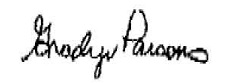 Gradye Parsons